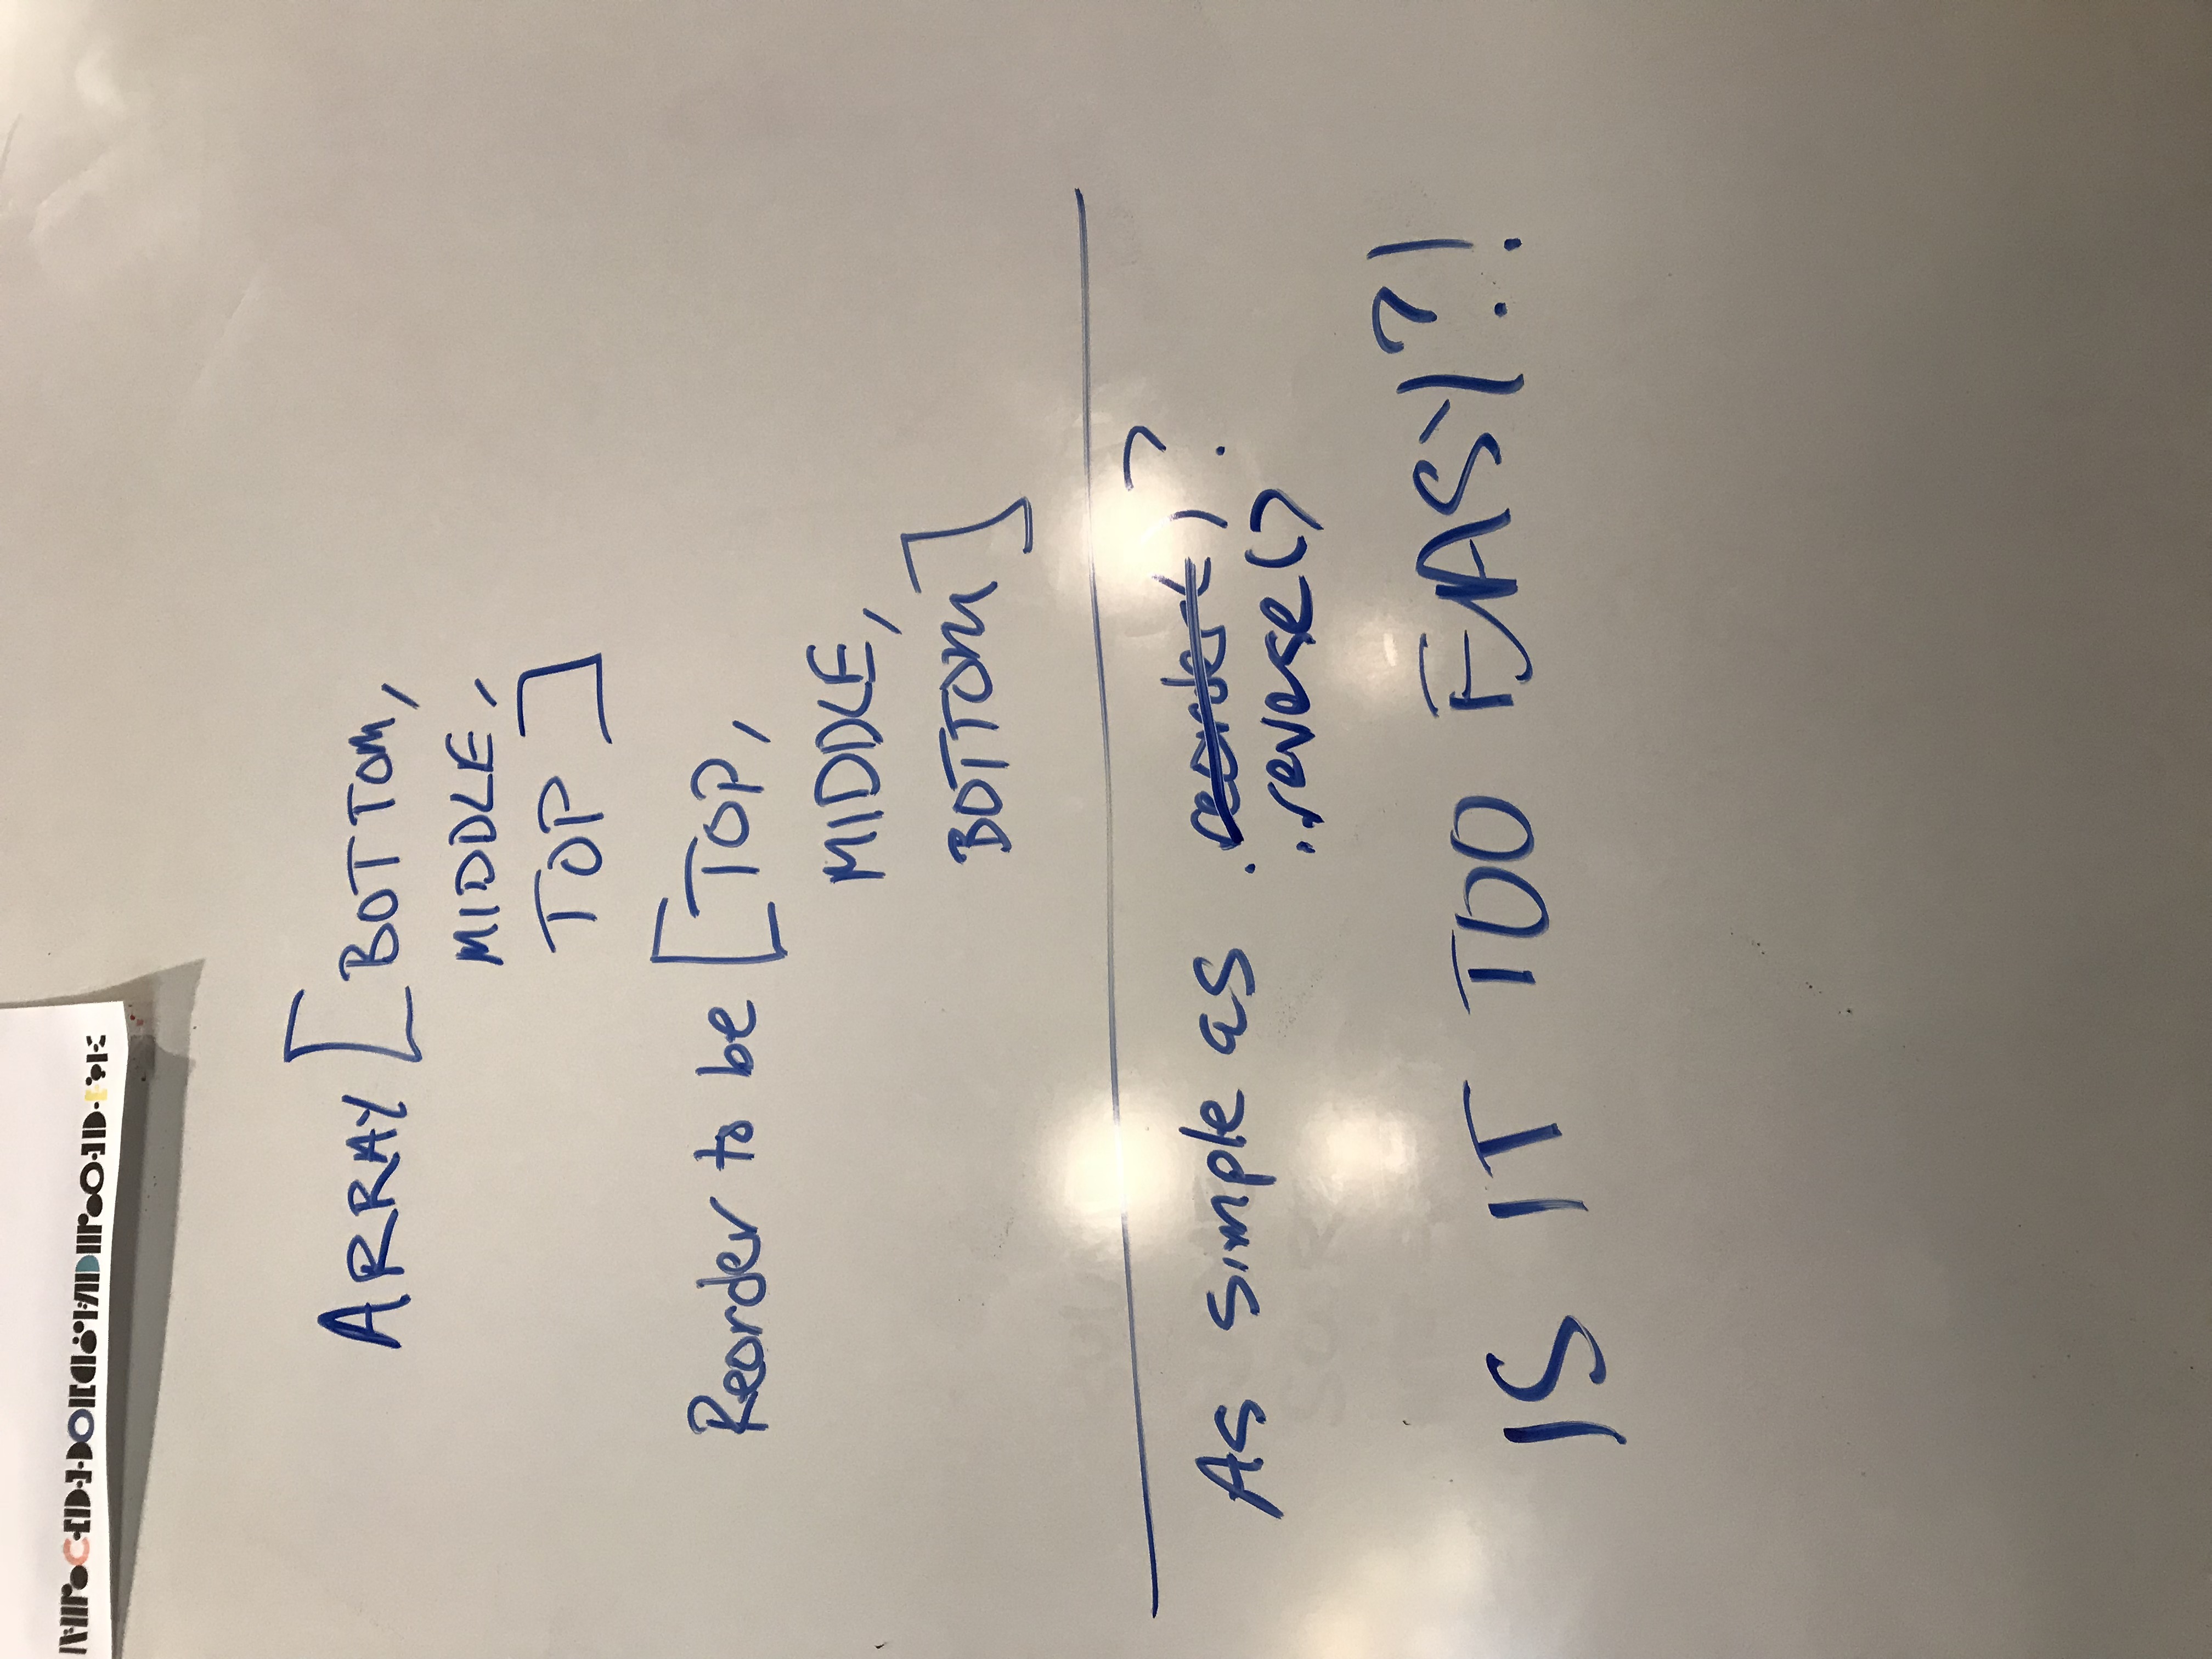 ARRAY [BOTTOM,
MIDDLE,
TOP]
Reorder to be [TOP,
MIDDLE,
BOTTOM]
As simple as .reorder()?
.reverse()
IS IT TOO EASY?!